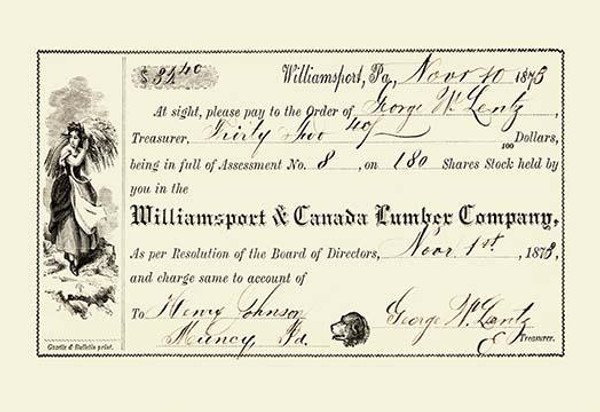 $ 32 40
Williamsport, Pa, Novr 10 1873
At sight, please pay to the Order of George W. Lentz,
Treasurer. Thirty Two 40/100 Dollars,
being in full of Assessment No. 8, on 180 Shares Stock held by
you in the
Williamsport & Canada Lumber Company,
As per Resolution of the Board of Directors, Novr. 1st, 1873,
and charge same to account of
To Henry Johnson
Muncy, Pa.
George W. Lentz
Treasurer.
Gazette & Bulletin print.